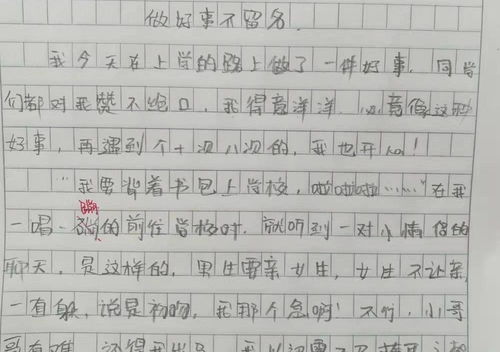 做好事不留名
我今天在上学的路上做了一件好事,同学
们都对我赞不绝口,我得意洋洋,心意像这种
好事,再遇到个十次八次的,我也开心!
"我要背着书包上学校,啦啦啦啦……"在我
一唱一蹦的前往学校时,就听到一对小情侣的
聊天,是这样的,男生要亲女生,女生不让亲,
一有躲,说是初吻,我那个急啊!不行,小哥
哥有难,还得我出